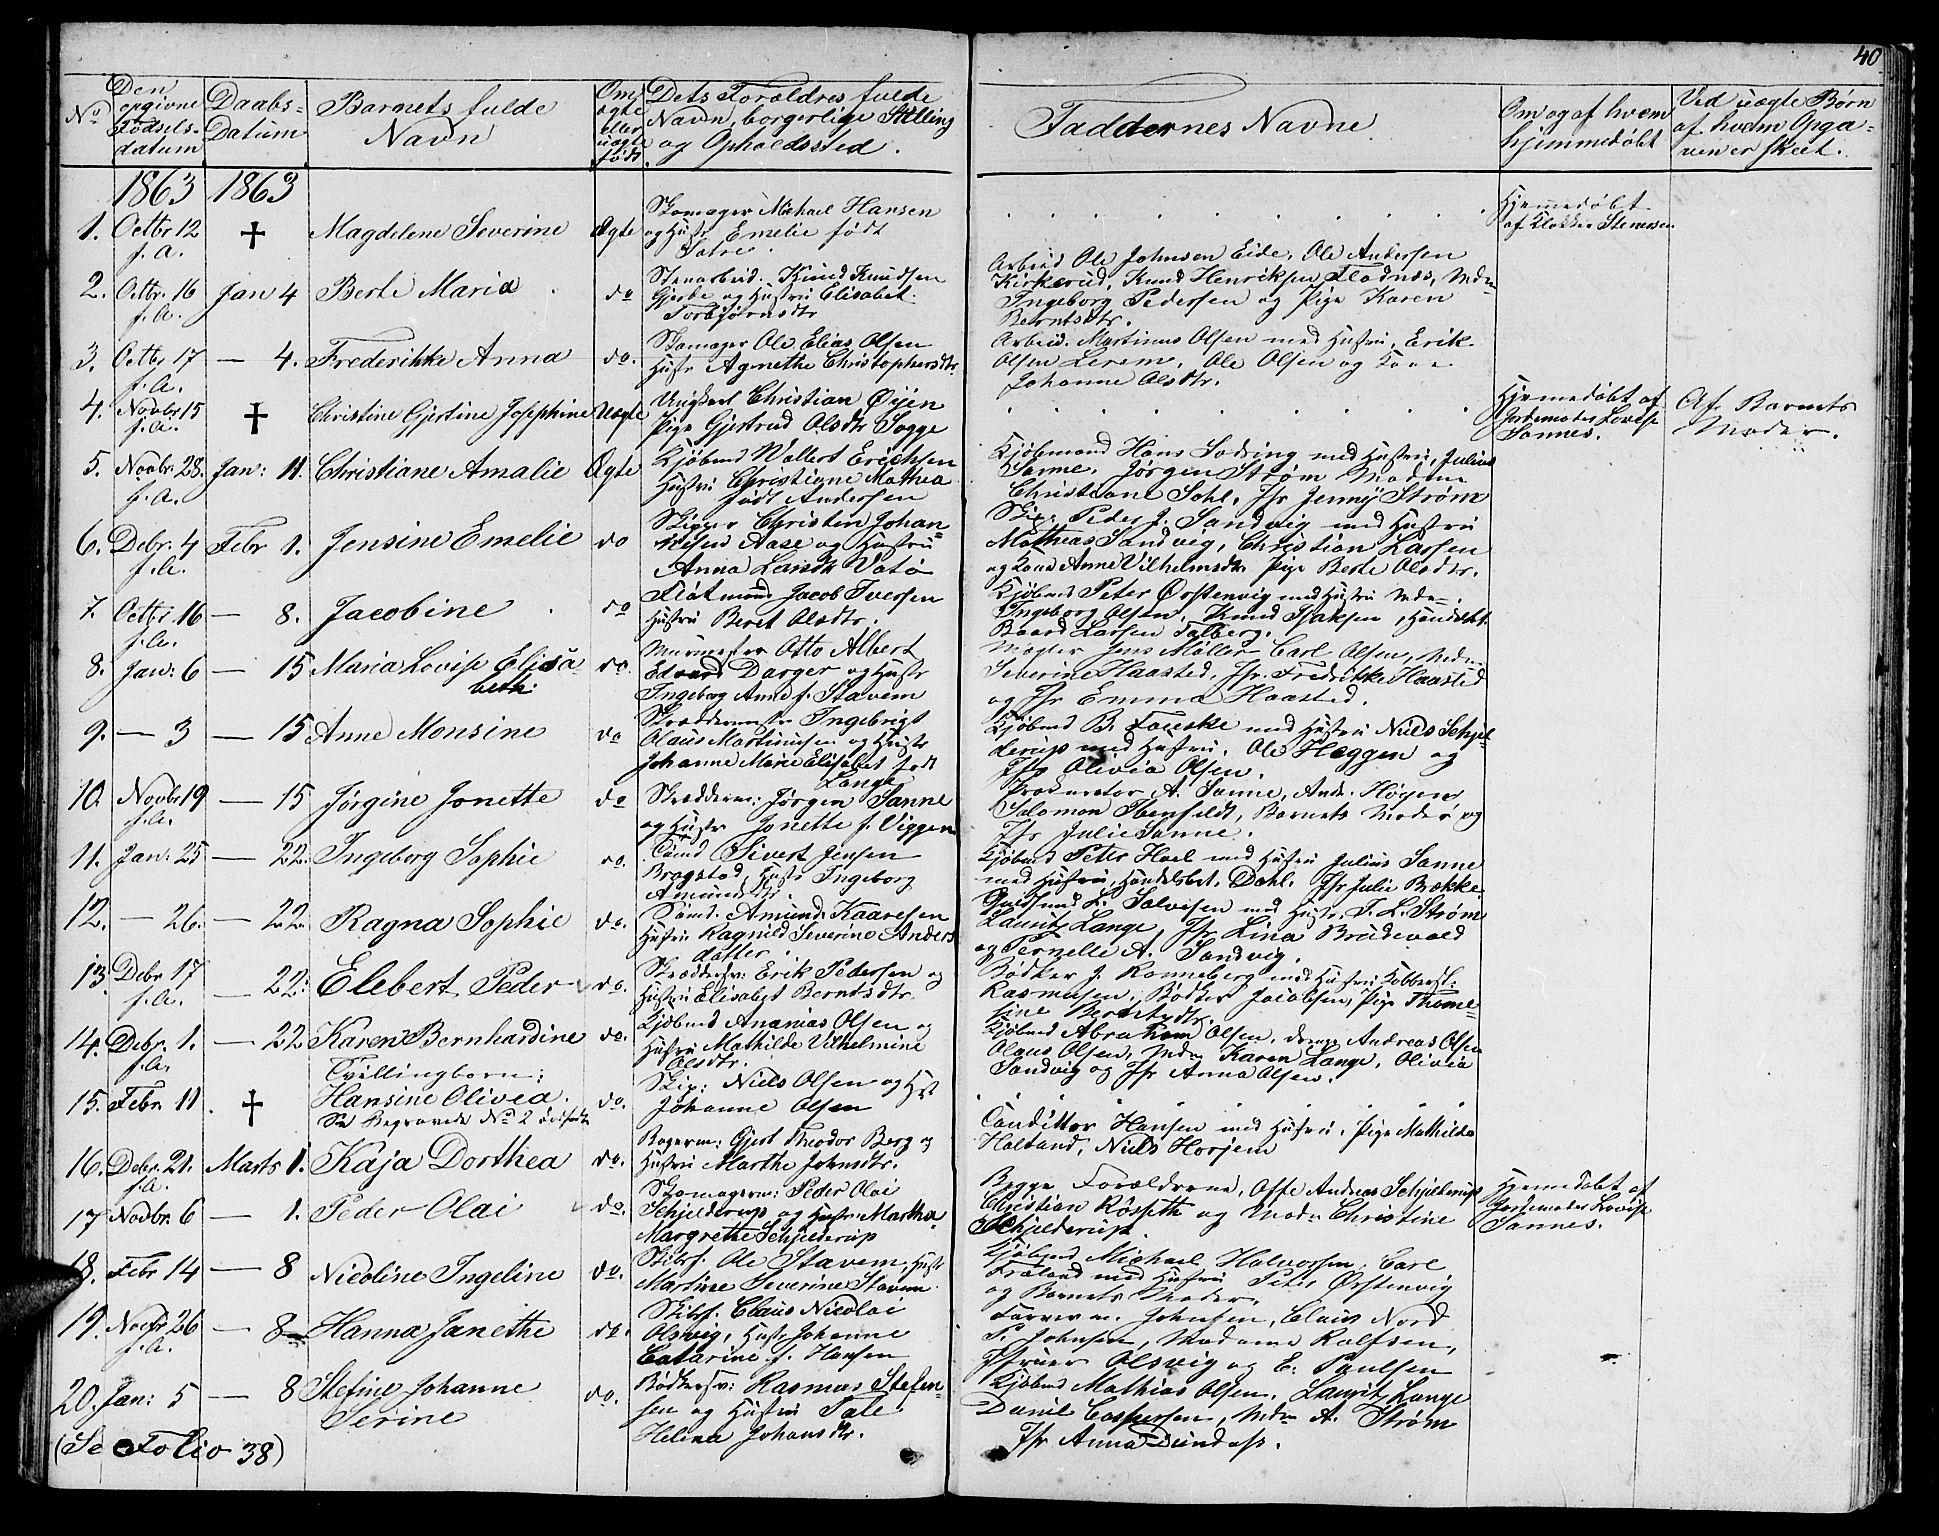 40
No
Den opgivne Fødselsdatum
Daabs-Datum
Barnets fulde Navn
Om ægte eller uægte født
Dets Forældres fulde Navn, borgerlige Stilling og Opholdssted.
Faddernes Navne
Om og af hvem hjemmedøbt
Ved uægte Børn af hvem Opgaven er skeet.
1863 1863
1. Octbr 12 f. A. † Magdelene Severine Ægte
Skomager Michael Hansen
og Hustr Emelie født
Hjemmedøbt
af Klokker Stenersen
2. Octbr. 16 f. A. Jan 4 Berte Maria do
Stenarbeid. Knud Knudsen
Gjerde og Hustru Elisabet
Torbjørnsdtr
Arbeid Ole Johnsen Eide, Ole Andersen
Kirkerud, Knud Henriksen Flodnæs, Mdm
Ingeborg Pedersen og Pige Karen
Berntsdtr.
3. Octbr 17 f. A. — 4. Frederikke Anna do.
Skomager Ole Elias Olsen
Hustr Agnethe Christophersdtr.
Arbeid. Martinus Olsen med Hustru, Erik
Olsen Lerem, Ole Olsen og Kone
Johanne Olsdtr.
4. Novbr 15 f. A. † Christine Gjertine Josephine Uægte
Ungkarl Christian Øyen
Pige Gjertrud Olsdtr Sogge
Hjemedøbt af
Jordemoder Lovise
Sannes.
Af Barnets
Moder.
5. Novbr. 28. f. A. Jan: 11. Christiane Amalie Ægte
Kjøbmd Wollert Erichsen
Hustru Christiane Mathea
født Andersen
Kjøbmand Hans Sodring med Hustru, Julius
Sanne, Jörgen Strøm Madme
Christiane Sohl, Jfr Jenny Strøm
6. Debr. 4 f. A. Febr 1. Jensine Emelie do
Skipper Christen Johan-
nesen Aase og Hustru
Anna Larsdtr Vatø
Skip. Peder J. Sandvig med Hustru
Mathias Sandvig, Christian Larsen
og Kone Anne Vilhelmsdtr. Pige Berte Olsdtr.
7. Octbr. 16 f. A. — 8. Jacobine do
Flødtmand Jacob Iversen
Hustru Beret Olsdtr.
Kjøbmd Peter Ørstenvig med Hustru Mdm
Ingeborg Olsen, Knud Isaksen, Handelsbt
Baard Larsen Talberg.
8. Jan: 6 — 15 Maria Lovise Elisa-
beth. do.
Murmester Otto Albert
Edvard Darger og Hustr
Ingeborg Anne f. Stavem
Mægler Jens Møller Carl Olsen, Mdm
Severine Haasted, Jfr. Fredrikke Haasted
og Jfr Emma Haasted.
9. — 3 — 15 Anne Monsine do
Skræddermester Ingebrigt
Olaus Martinusen og Hustr
Johanne Marie Elisabet født
Lange
Kjøbmd B. Foieske med Hustru Niels Schjel-
derup med Hustru, Ole Heggen og
Jfr Olivia Olsen.
10. Novbr 19 f. A. — 15 Jørgine Jonette do
Skrædderm: Jørgen Sanne
og Hustr Jonette f. Viggen
Prokurator A. Sanne, And. Høgen
Salomon Ibenfeldt, Barnets Moder og
Jfr Julie Sanne.
11. Jan: 25 — 22. Ingeborg Sophie do.
Tømd Sivert Jensen
Bragstad, Hustr Ingeborg
Amundsdtr.
Kjøbmd Peter Hoel med Hustru Julius Sanne
med Hustru, Handelsbet. Dahl. Jfr Julie Brække
12. — 26. — 22. Ragna Sophie do.
Tømd. Amund Kaaresen
Hustru Ragnild Severine Anders
datter.
Guldsmd L. Salvesen med Hustr, T. L. Strøm
Lauritz Lange, Jfr Lina Brudevold
og Pernelle A. Sandvig.
13. Debr 17 f. A. — 22. Elebert Peder do.
Skræddersv: Erik Pedersen og
Hustru Elisabet Berntsdtr.
Bødker J. Ronneberg med Hustru Kobbersl:
Rasmusen, Bødker Jacobsen, Pige Thome-
sine Berntsdtr.
14. Debr. 1. f. A. — 22 Karen Bernhardine do.
Kjøbmd Ananias Olsen og
Hustru Mathilde Vilhelmine
Olsdtr.
Kjøbmd Abraham Olsen, Dreng Andreas Olsen
Olaus Olsen, Mdm Karen Lange, Olivia
Sandvig og Jfr Anna Olsen.
15. Febr 11. † Tvillingbarn:
Hansine Olivea.
Se Begravede No 2 do.
Skip: Niels Olsen og Hust
Johanne Olsen
16. Debr. 21. f. A. Marts 1. Kaja Dorthea do.
Bagerm: Gjert Theodor Berg og
Hustru Marthe Johnsdtr.
Conditor Hansen med Hustru, Pige Mathilde
Holtand, Niels Horjem
17 Novbr. 6 — 1. Peder Olai do.
Skomagerm: Peder Olai
Schjelderup og Hustr Martha
Margrethe Schjelderup
Begge Forældrene, Offe Andreas Schjelderup
Christian Røsseth og Mdm Christine
Schjelderup
Hjemedøbt af
Jordemoder Lovise
Sannes.
18. Febr 14 — 8 Nicoline Ingeline do.
Skibsf. Ole Stavem, Hustr
Martine Severine Stavem
Kjøbmd Michael Halvorsen, Carl
Froland med Hustru Peter Ørstenvig
og Barnets Moder.
19. Novbr 26 f. A. — 8 Hanna Janethe do.
Skibsf. Claus Nicolai
Olsvig, Hustr Johanne
Catarine f. Hansen
Farverm. Johnsen, Claus Nord
P. Johnsen, Madame Rolfsen,
Jfruer Olsvig og E. Paulsen
20. Jan: 5 — 8 Stefine Johanne
Serine do.
Bødkersv: Rasmus Stefen-
sen og Hustru Tale
Helena Johansdtr.
Kjøbmd Mathias Olsen, Lauritz Lange
Daniel Caspersen, Mdm A. Strøm
Jfr Anna Dundas.
(Se Folio 38)